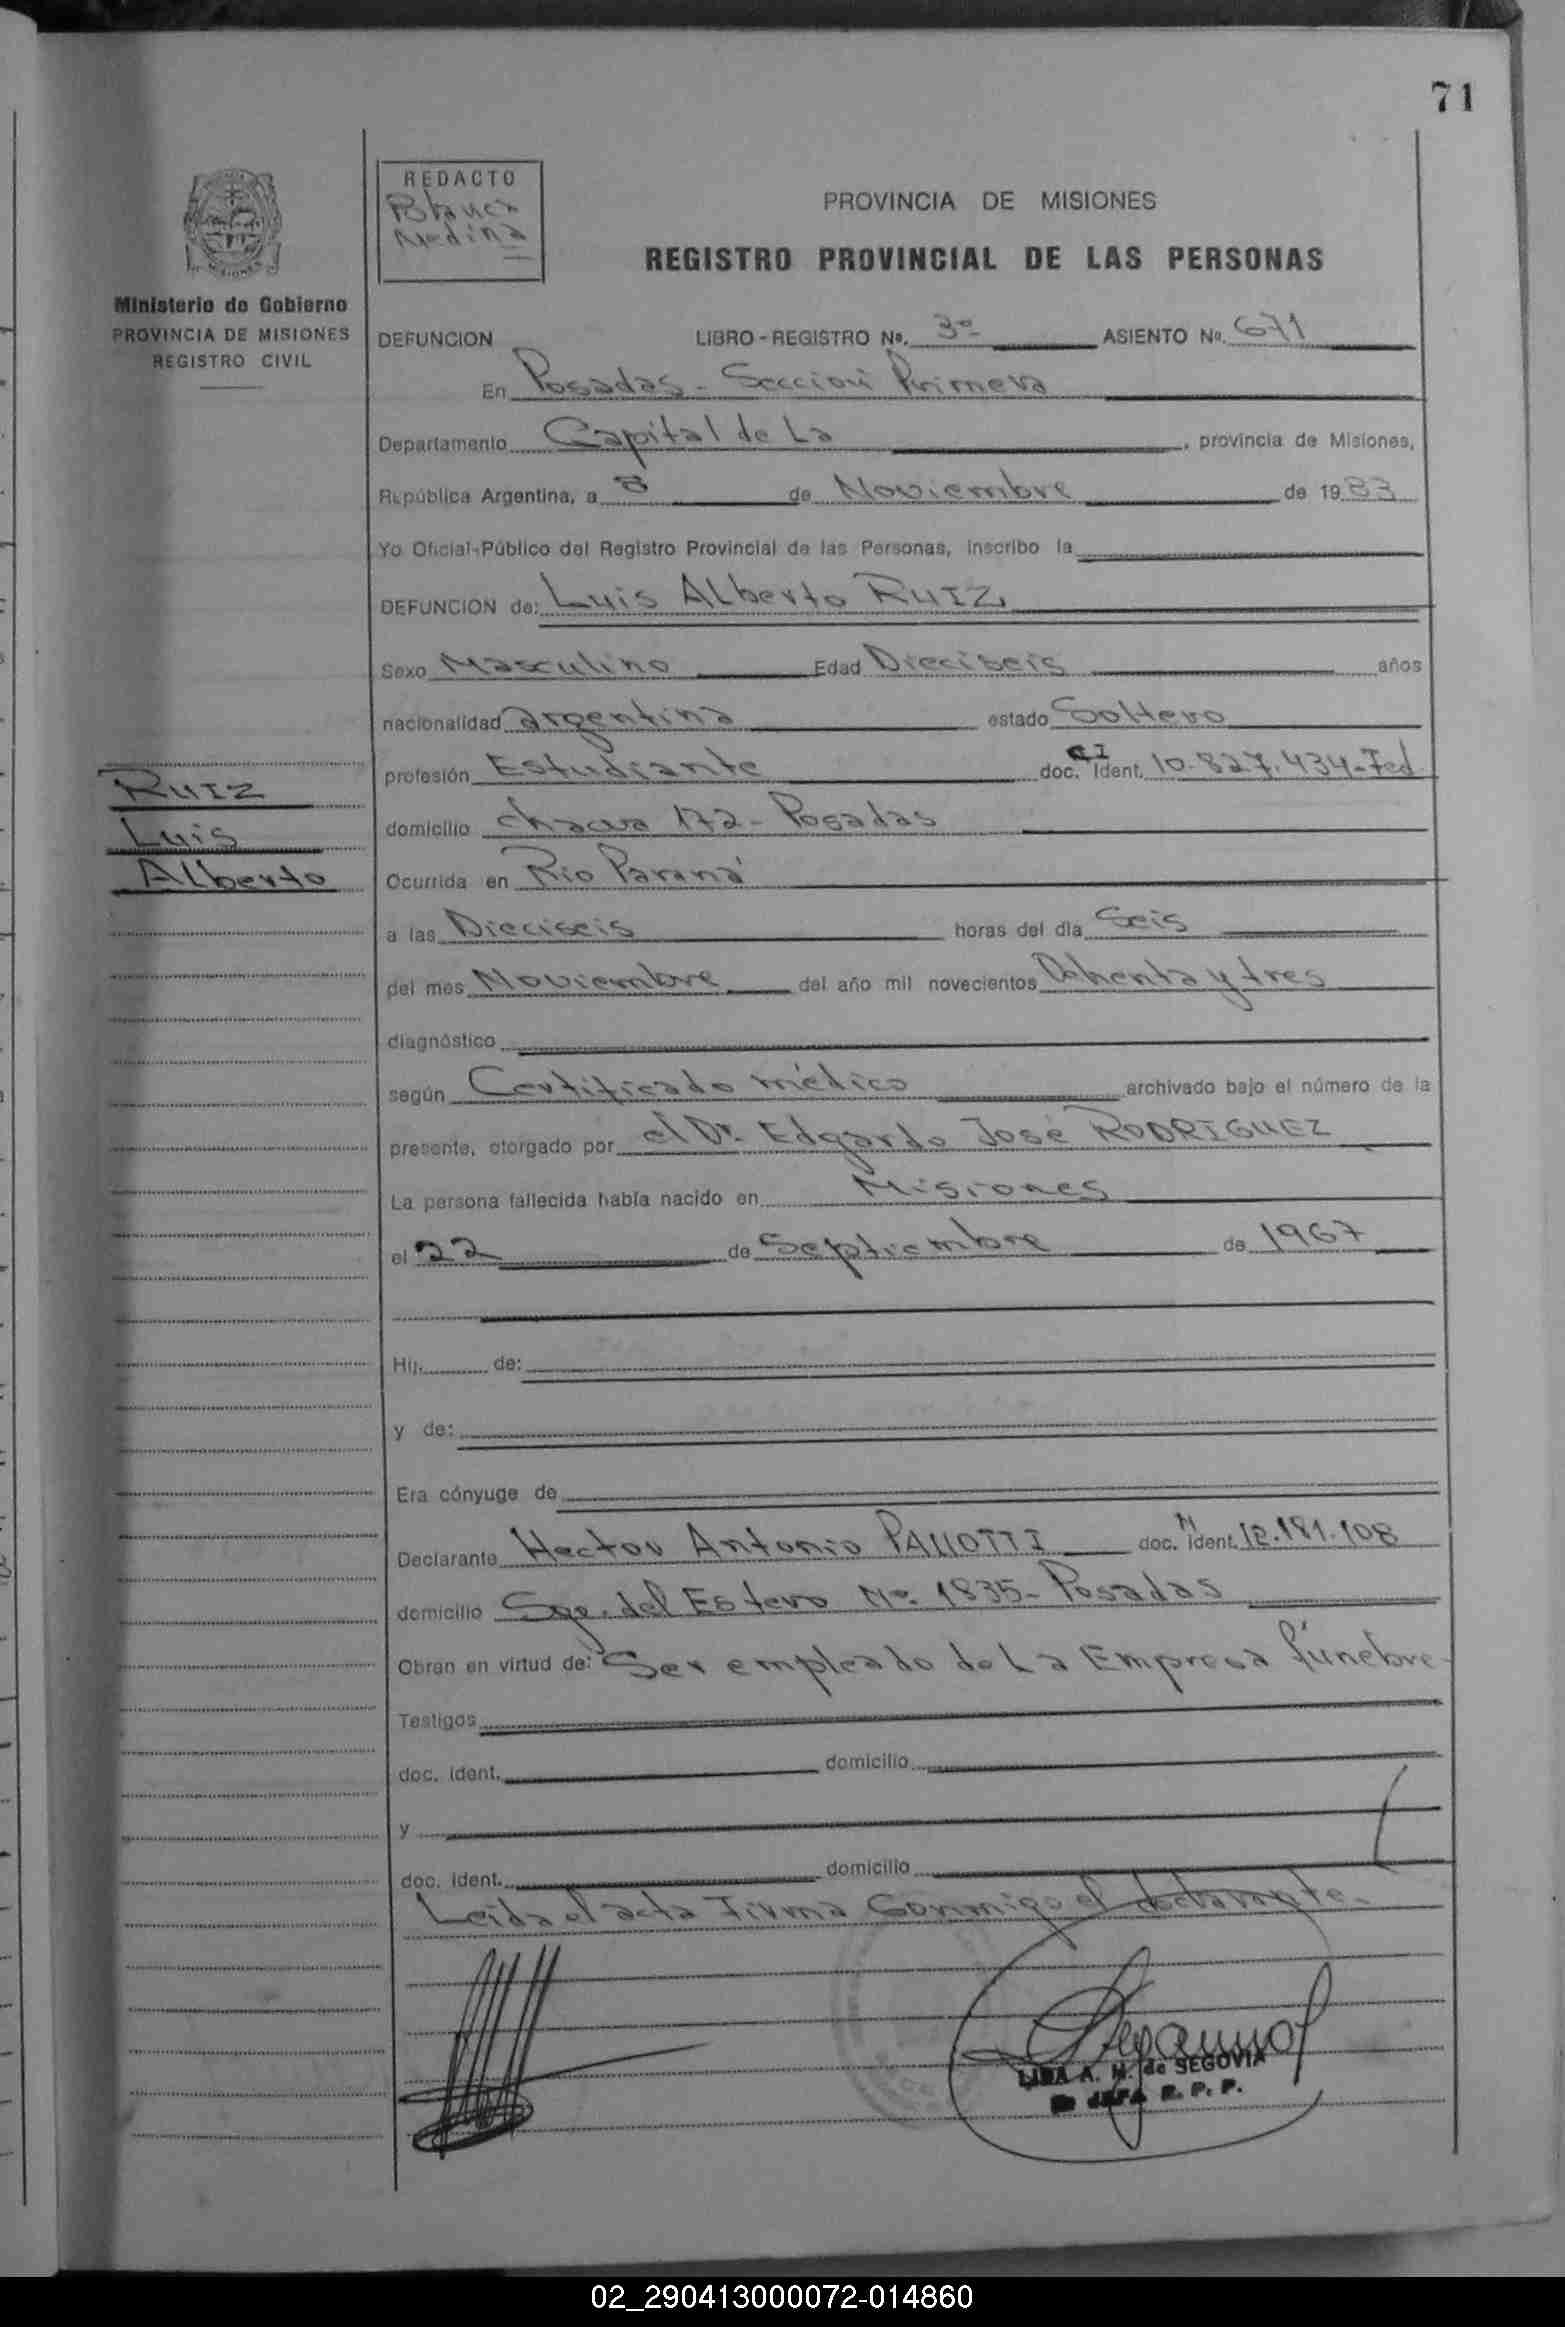 71
REDACTO
Medina
PROVINCIA DE MISIONES
REGISTRO PROVINCIAL DE LAS PERSONAS
MISIONES
Ministerio de Gobierno
PROVINCIA DE MISIONES
REGISTRO CIVIL
DEFUNCION LIBRO - REGISTRO Nº. 3º ASIENTO Nº. 671
En Posadas - Sección Primera
Departamento Capital de La , provincia de Misiones,
República Argentina, a 8 de Noviembre de 1983
Yo Oficial Público del Registro Provincial de las Personas, inscribo la
DEFUNCION de: Luis Alberto RUIZ
Sexo Masculino Edad Dieciseis años
nacionalidad argentina estado Soltero
profesión Estudiante doc. CI Ident. 10.827.434-Fed
RUIZ
Luis
Alberto
domicilio chacra 172 - Posadas
Ocurrida en Rio Paraná
a las Dieciseis horas del día Seis
del mes Noviembre del año mil novecientos Ochenta y tres
diagnóstico
según Certificado médico archivado bajo el número de la
presente, otorgado por el Dr. Edgardo José RODRIGUEZ
La persona fallecida había nacido en Misiones
el 22 de Septiembre de 1967
Hij. de:
y de:
Era cónyuge de
Declarante Hector Antonio PALLOTTI doc. M Ident. 12.181.108
domicilio Sgo. del Estero Nº 1835- Posadas
Obran en virtud de: Ser empleado de La Empresa fúnebre-
Testigos
doc. ident. domicilio
y
doc. ident. domicilio
Leida el acta Firma Conmigo el declarante.
LIDA A. M. de SEGOVIA
JEFA R. P. P.
02_290413000072-014860